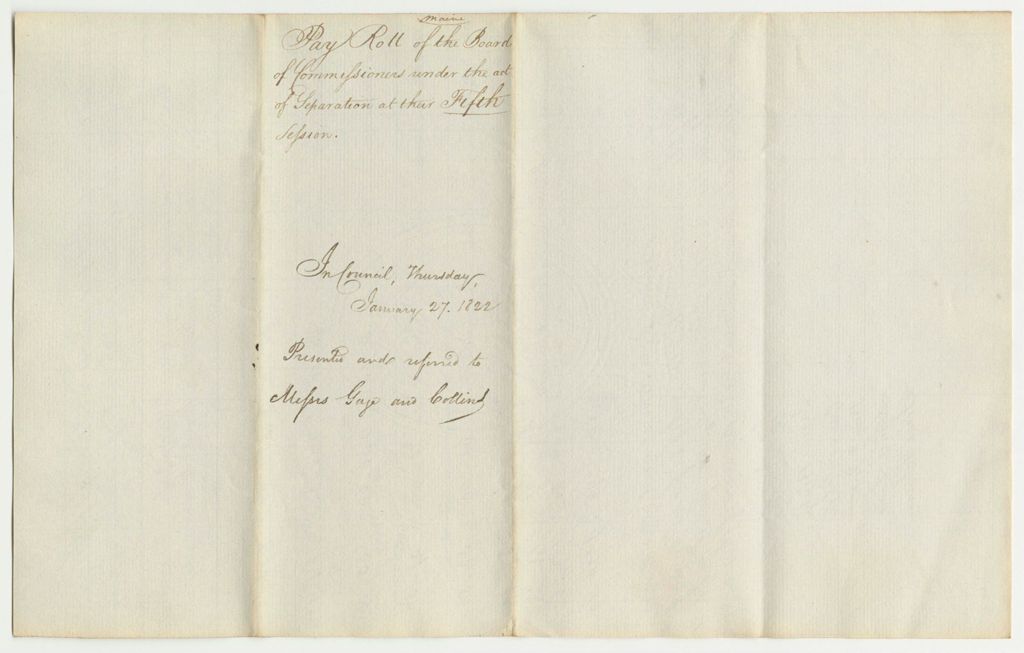 maine
Pay Roll of the Board
of Commissioners under the act
of Separation at their Fifth
Session.
In Council, Thursday,
January 27. 1822
Presented and referred to
Messrs Gage and Collins